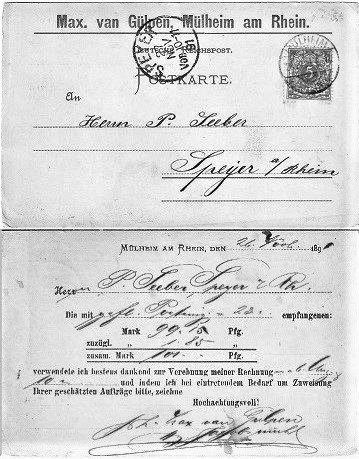 Max. van Gülpen, Mülheim am Rhein.
SPEYER
NOV
DEUTSCHE REICHSPOST.
MÜLHEIM
5
POSTKARTE.
An
Herrn P. Seeber
Speyer a/Rhein
MÜLHEIM AM RHEIN, DEN 26 189
Herrn P. Seeber, Speyer a. Rh.
Die mit gefl. empfangenen:
Mark 99.15 Pfg.
zuzügl. „ 1.85 „
zusam. Mark 101.— Pfg.
verwendete ich bestens dankend zur Vorebnung meiner Rechnung
und indem ich bei eintretendem Bedarf um Zuweisung
Ihrer geschätzten Aufträge bitte, zeichne
Hochachtungsvoll!
Max van Gülpen